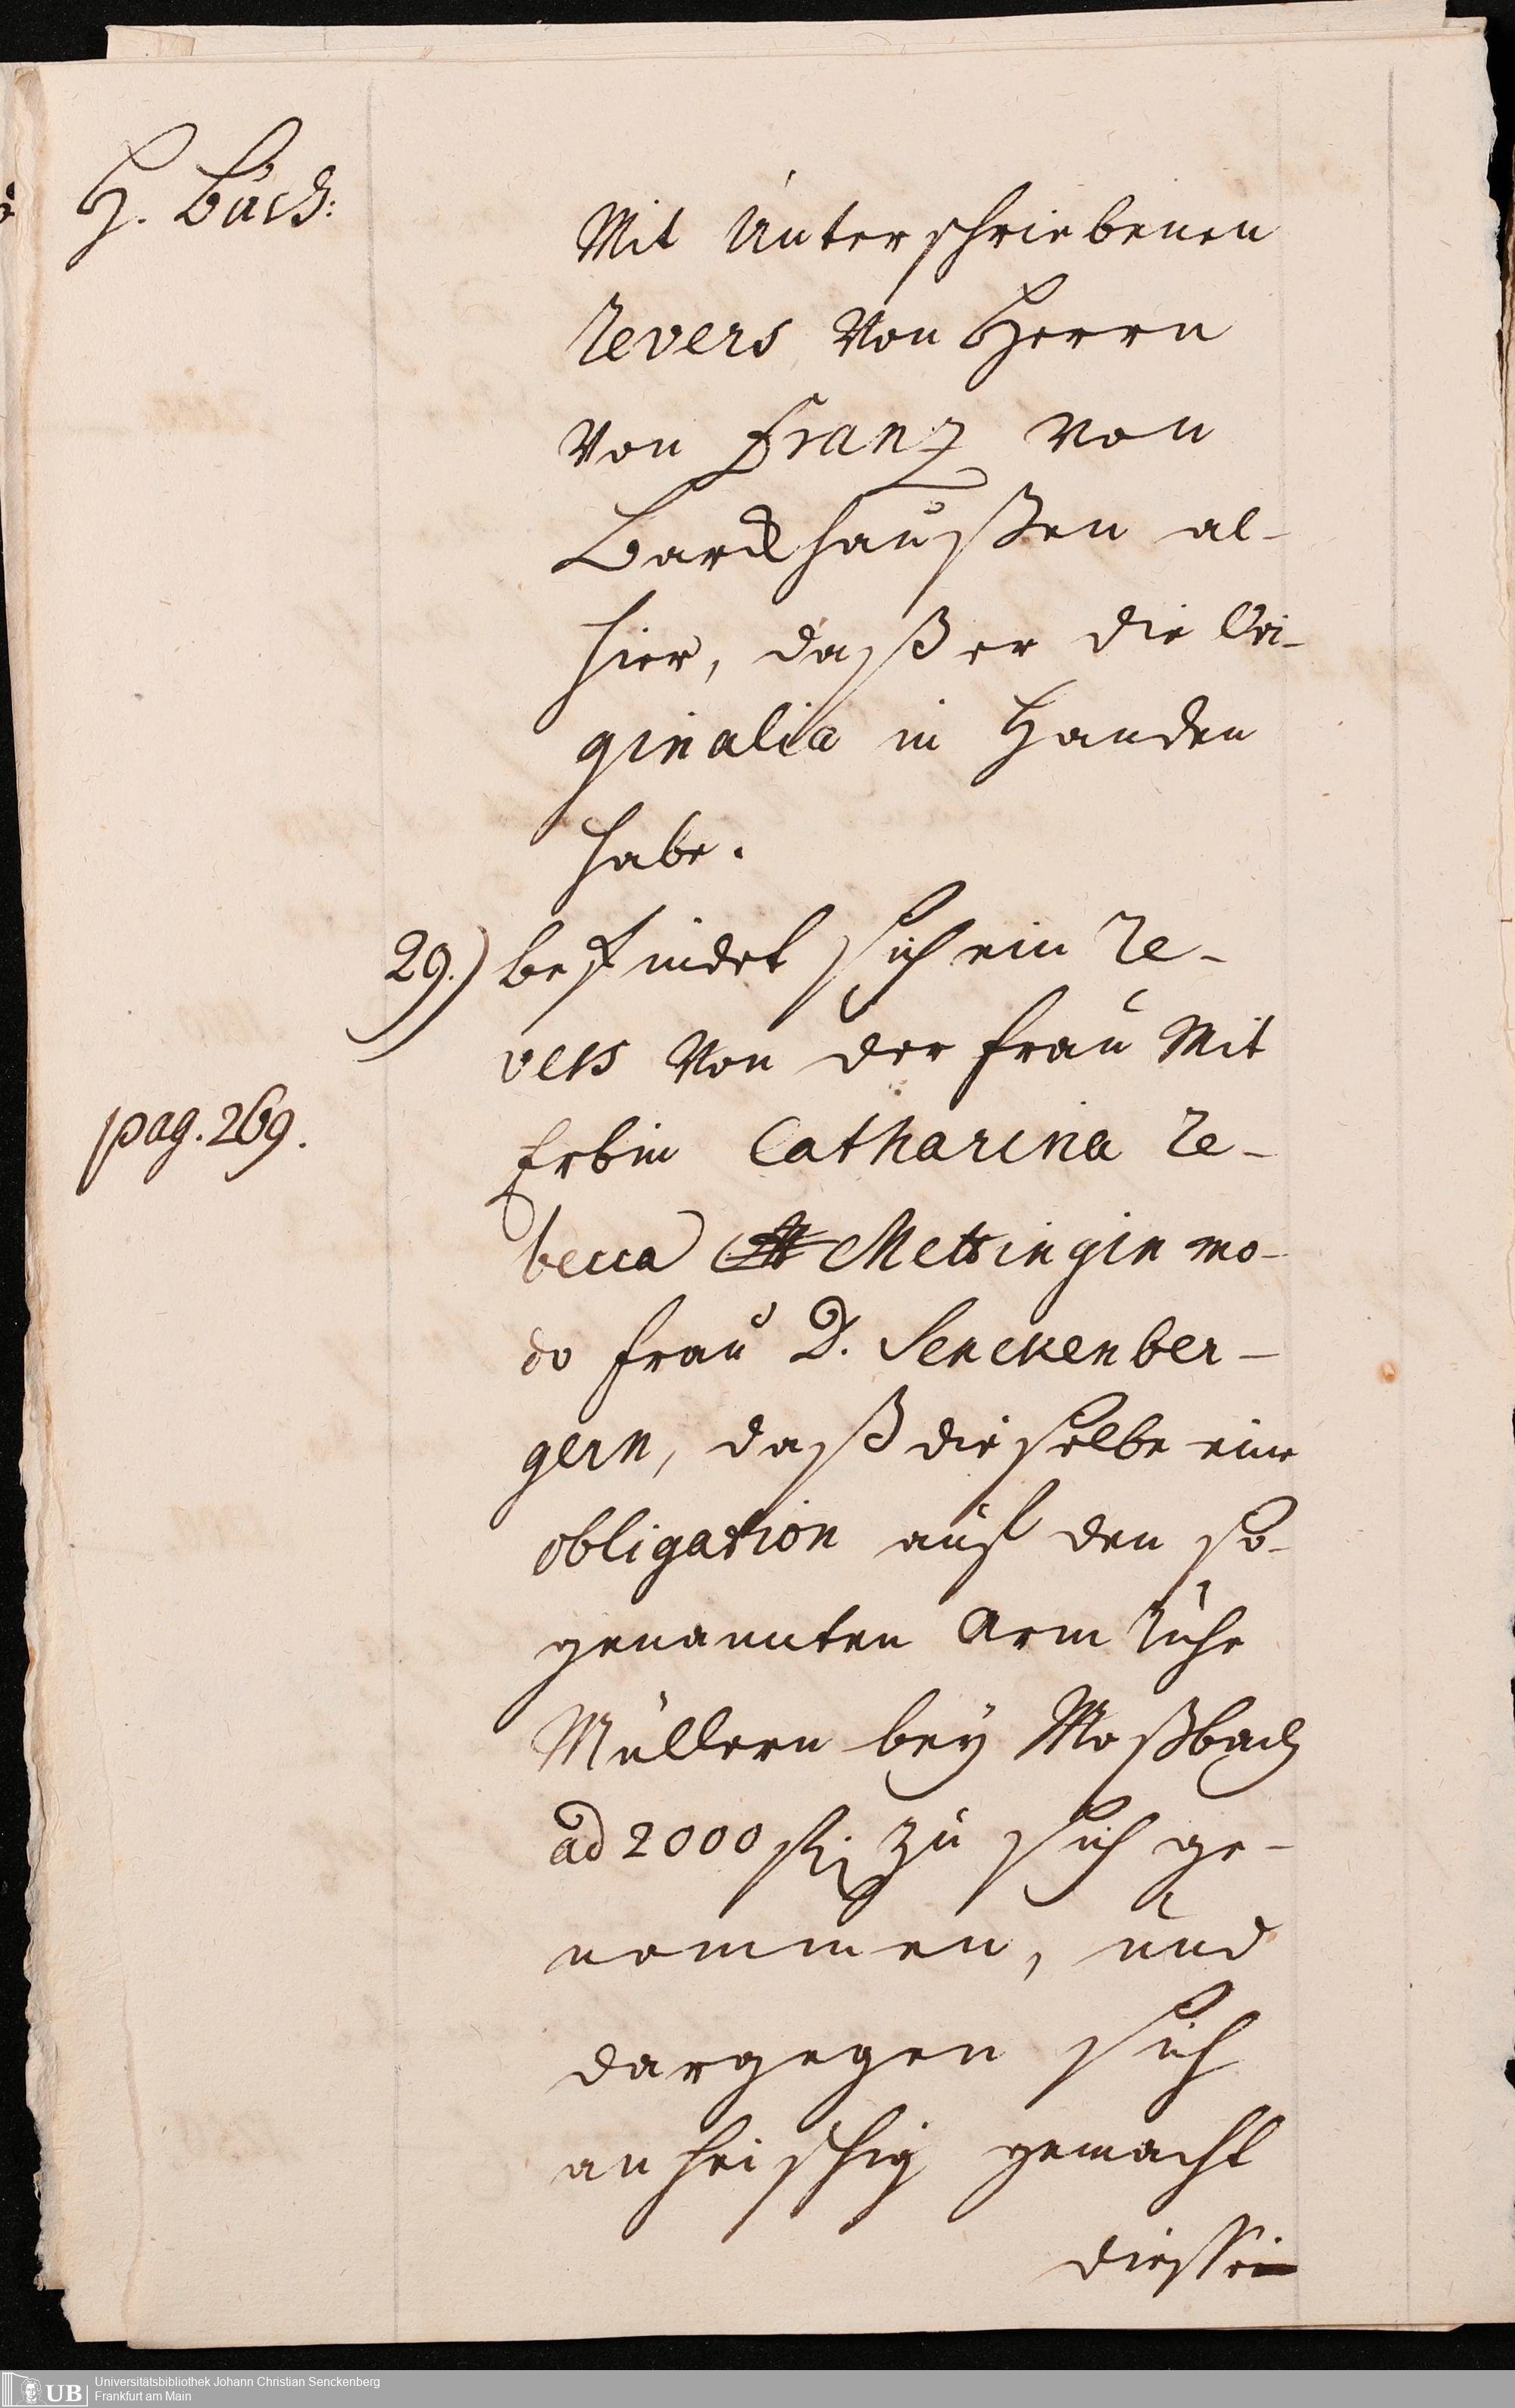 H. Buch:
Mit Unterschriebenen
Revers Von Herrn
Von Franz von
Barckhaußen al-
hier, daß er die Ori-
ginalia in Handen
habe.
29.) befindet sich ein Re-
vers Von der Frau Mit
Erbin Catharina Re-
pag. 269.
becca Mettingin mo-
do Frau D. Senckenber-
gern, daß dieselbe eine
obligation auf den so-
genannten Arm Ruhe
Müllern bey Moßbach
ad 2000 fl. zu sich ge-
nommen, und
dargegen sich
anheischig gemacht
Universitätsbibliothek Johann Christian Senckenberg
UB
Frankfurt am Main